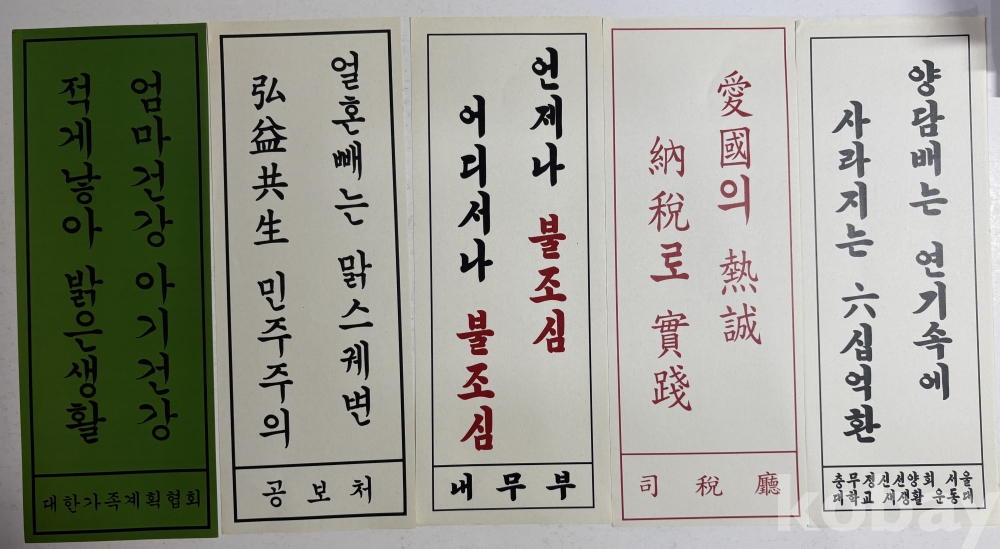 엄마건강 아기건강
적게낳아 밝은생활
대한가족계획협회
얼혼빼는 맑스궤변
弘益共生 민주주의
공보처
언제나 불조심
어디서나 불조심
내무부
愛國의 熱誠
納稅로 實踐
司稅廳
양담배는 연기속에
사라지는 六십억환
충무정신선양회 서울
대학교 새생활 운동대
kobay